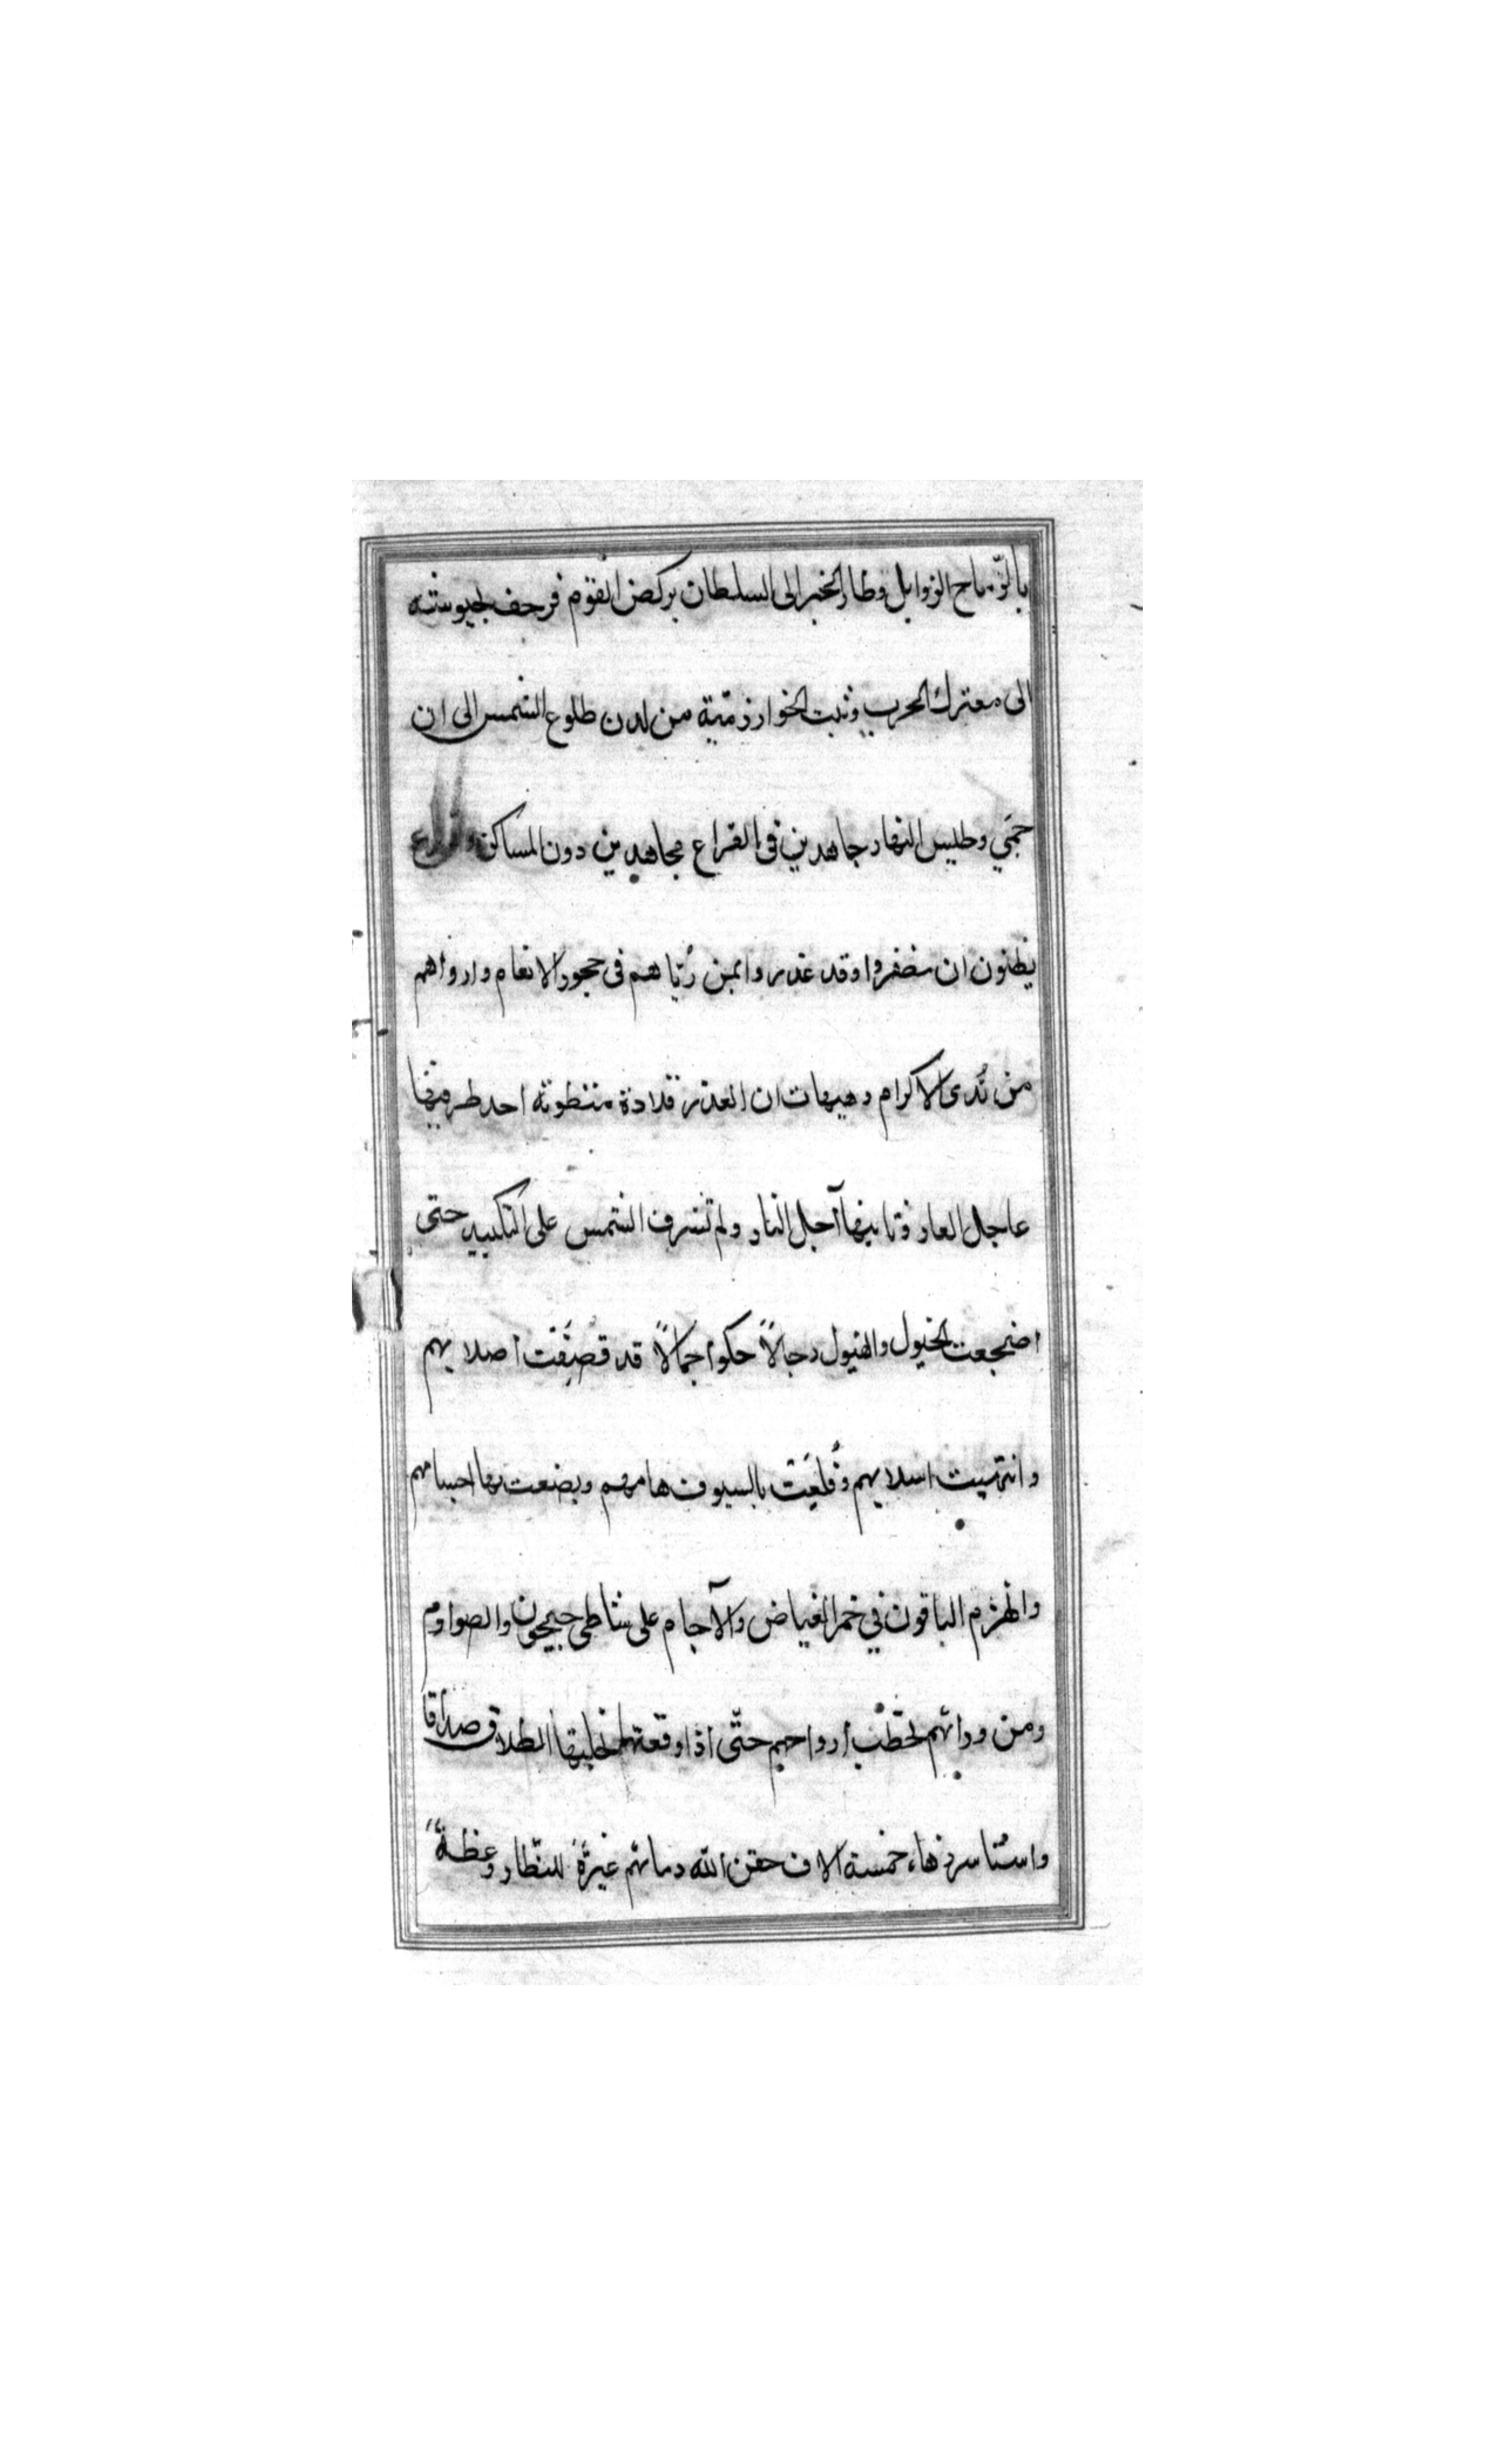 بالرّماح الزوابل وطار الخبر الى السلطان بركض القوم فزحف لجيوشه
الى معترك الحرب وثبت الخوارزمية من لدن طلوع الشمس الى ان
حمي وطيس النهار جاهدين فى القراع مجاهدين دون المساكن
يظنون ان سنضفروا وقد غدروا بمن ربّاهم فى حجور الانعام وارواهم
من ثدى الاكرام وهيهات ان الغدر قلادة منظومة احد طرفيها
عاجل العار وثانيها آجل النار ولم تشرف الشمس على التكبيد حتى
اضجعت الخيول والفيول رجالاً حكوا جمالاً قد قصفت اصلابهم
وانتهبت اسلابهم وفلقت بالسيوف هامهم وبضعت بها اجسامهم
وانهزم الباقون في خمر الغياض والآجام على شاطى جيحون والصوارم
ومن ورائهم تخطب ارواحهم حتّى اذا وقعتهم الطلاق صداقا
واستاسر زهاء خمسة الاف حقن الله دمائهم عبرةً للنظار وعظةً